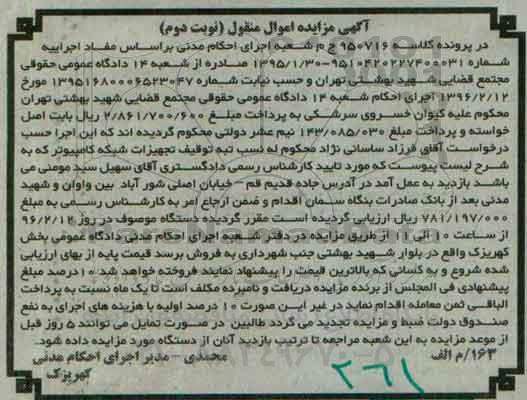 آگهی مزایده اموال منقول (نوبت دوم)
در پرونده کلاسه ۹۵۰۷۱۶ ج م شعبه اجرای احکام مدنی براساس مفاد اجراییه
شماره ۹۵۱۰۴۲۰۲۲۷۴۰۰۰۳۱-۱۳۹۵/۱/۳۰ صادره از شعبه ۱۴ دادگاه عمومی حقوقی
مجتمع قضایی شهید بهشتی تهران و حسب نیابت شماره ۱۳۹۵۱۶۸۰۰۰۶۵۲۳۰۴۷ مورخ
۱۳۹۶/۲/۱۲ اجرای احکام شعبه ۱۴ دادگاه عمومی حقوقی مجتمع قضایی شهید بهشتی تهران
محکوم علیه کیوان خسروی سرشکی به پرداخت مبلغ ۲/۸۶۱/۷۰۰/۶۰۰ ریال بابت اصل
خواسته و پرداخت مبلغ ۱۴۳/۰۸۵/۰۳۰ نیم عشر دولتی محکوم گردیده اند که این اجرا حسب
درخواست آقای فرزاد ساسانی نژاد محکوم له نسب تبه توقیف تجهیزات شبکه کامپیوتر که به
شرح لیست پیوست که مورد تایید کارشناس رسمی دادگستری آقای سهیل سید مومنی می
باشد بازدید به عمل آمد در آدرس جاده قدیم قم – خیابان اصلی شور آباد بین واوان و شهید
مدنی بعد از بانک صادرات بنگاه سمان اقدام و ضمن ارجاع امر به کارشناس رسمی به مبلغ
۷۸۱/۱۹۷/۰۰۰ ریال ارزیابی گردیده است مقرر گردیده دستگاه موصوف در روز ۹۶/۲/۱۲
از ساعت ۱۰ الی ۱۱ از طریق مزایده در دفتر شعبه اجرای احکام مدنی دادگاه عمومی بخش
کهریزک واقع در بلوار شهید بهشتی جنب شهرداری به فروش برسد قیمت پایه از بهای ارزیابی
شده شروع و به کسانی که بالاترین قیمت را پیشنهاد نمایند فروخته خواهد شد ۱۰درصد مبلغ
پیشنهادی فی المجلس از برنده مزایده دریافت و نامبرده مکلف است تا یک ماه نسبت به پرداخت
الباقی ثمن معامله اقدام نماید در غیر این صورت ۱۰ درصد اولیه با هزینه های اجرای به نفع
صندوق دولت ضبط و مزایده تجدید می گردد طالبین در صورت تمایل می توانند ۵ روز قبل
از موعد مزایده به این شعبه مراجعه تا ترتیب بازدید آنان از دستگاه مورد مزایده داده شود.
۱۶۳/م الف
محمدی – مدیر اجرای احکام مدنی
کهریزک
۲۶۱